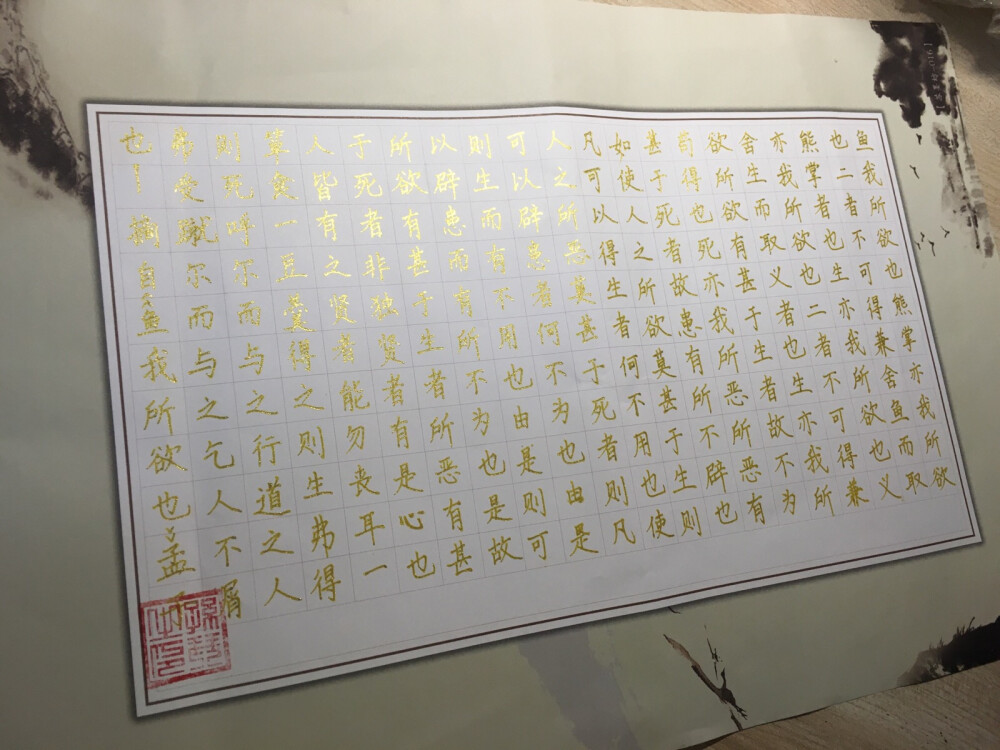 鱼我所欲也熊掌亦我所欲
也二者不可得兼舍鱼而取
熊掌者也生亦我所欲也义
亦我所欲也二者不可得兼
舍生而取义者也生亦我所
欲所欲有甚于生者故不为
苟得也死亦我所恶所恶有
甚于死者故患有所不辟也
如使人之所欲莫甚于生则
凡可以得生者何不用也使
人之所恶莫甚于死者则凡
可以辟患者何不为也由是
则生而有不用也由是则可
以辟患而有所不为也是故
所欲有甚于生者所恶有甚
于死者非独贤者有是心也
人皆有之贤者能勿丧耳一
箪食一豆羹得之则生弗得
则死呼尔而与之行道之人
弗受蹴尔而与之乞人不屑
也—摘自《鱼我所欲也》孟子